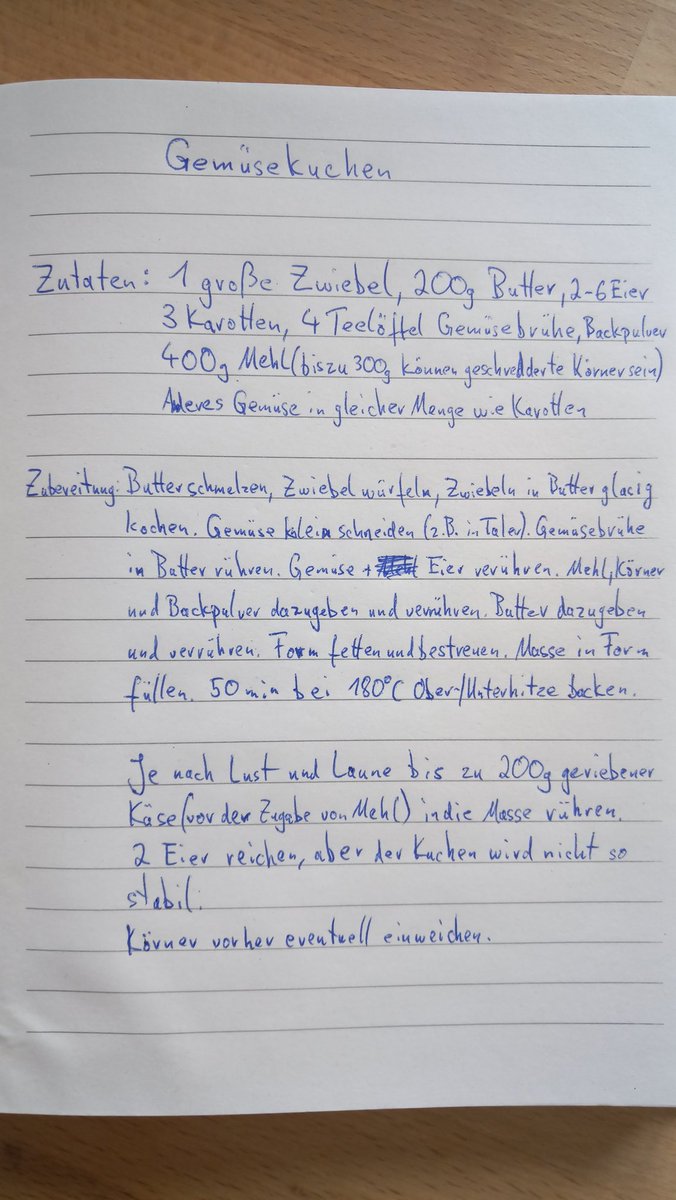 Gemüsekuchen
Zutaten: 1 große Zwiebel, 200g Butter, 2-6 Eier
3 Karotten, 4 Teelöffel Gemüsebrühe, Backpulver
400g Mehl (bis zu 300g können geschredderte Körner sein)
Anderes Gemüse in gleicher Menge wie Karotten
Zubereitung: Butter schmelzen, Zwiebel würfeln, Zwiebeln in Butter glasig
kochen. Gemüse klein schneiden (z.B. in Taler). Gemüsebrühe
in Butter rühren. Gemüse + Eier verühren. Mehl, Körner
und Backpulver dazugeben und verrühren. Butter dazugeben
und verrühren. Form fetten und bestreuen. Masse in Form
füllen. 50 min bei 180°C Ober-/Unterhitze backen.
Je nach Lust und Laune bis zu 200g geriebener
Käse (vor der Zugabe von Mehl) in die Masse rühren.
2 Eier reichen, aber der Kuchen wird nicht so
stabil.
Körner vorher eventuell einweichen.